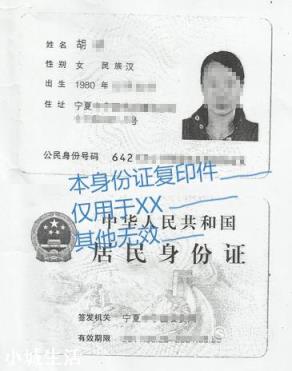 姓名 胡
性别 女 民族汉
出生 1980年
住址 宁夏
号
公民身份号码 642
本身份证复印件
仅用于XX
其他无效
中华人民共和国
居民身份证
签发机关 宁夏
有效期限
小城生活